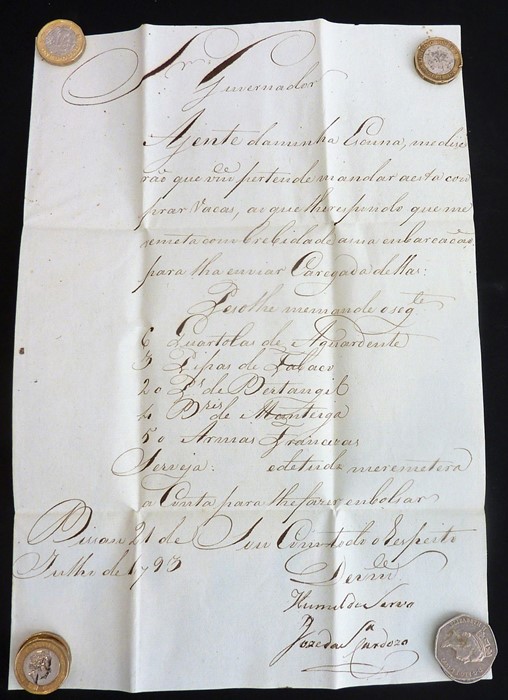 Snr.
Guvernador
A gente da minha Escuna, me dise
rão que vm pertende mandar a esta com
prar Vacas, ao que lhe respondo que me
remeta com brebidade a sua enbarcação
para lha enviar Caregada delas:
Peso lhe me mande o segte
6 Quartolas de Aguardente
3 Pipas de Tabaco
20 Ps de Bertangil
4 Bris de Manteiga
50 Armas Francezas
Serveja: e de tudo me remetera
a Conta para lhe fazer enbolsar
Bisau 21 de Sou Com todo o Respeito
Julho de 1793
De vm
Humilde Servo
Joze da Sa Cardozo